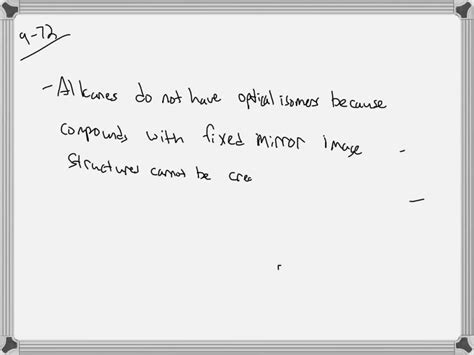 9-72
- Alkanes do not have optical isomers because
compounds with fixed mirror image
structures cannot be crea